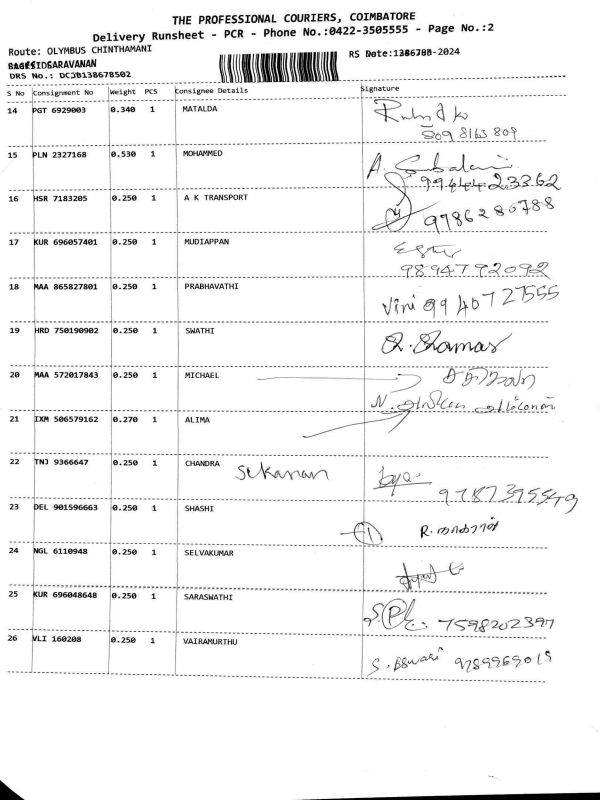 THE PROFESSIONAL COURIERS, COIMBATORE
Delivery Runsheet - PCR - Phone No.:0422-3505555 - Page No.:2
Route: OLYMBUS CHINTHAMANI
SARAVANAN
RS -2024
DRS No.: DCJB138678502
S No Consignment No Weight PCS Consignee Details Signature
14 PGT 6929003 0.340 1 MATALDA
809 8163 809
15 PLN 2327168 0.530 1 MOHAMMED A.
9944423362
16 HSR 7183205 0.250 1 A K TRANSPORT
9786280788
17 KUR 696057401 0.250 1 MUDIAPPAN
9894792092
18 MAA 865827801 0.250 1 PRABHAVATHI
Vini 9940727555
19 HRD 750190902 0.250 1 SWATHI
20 MAA 572017843 0.250 1 MICHAEL
N.
21 IXM 506579162 0.270 1 ALIMA
22 TNJ 9366647 0.250 1 CHANDRA
Sekanan
23 DEL 901596663 0.250 1 SHASHI
R.
24 NGL 6110948 0.250 1 SELVAKUMAR
25 KUR 696048648 0.250 1 SARASWATHI
7598202397
26 VLI 160208 0.250 1 VAIRAMURTHU
S. 9789969019